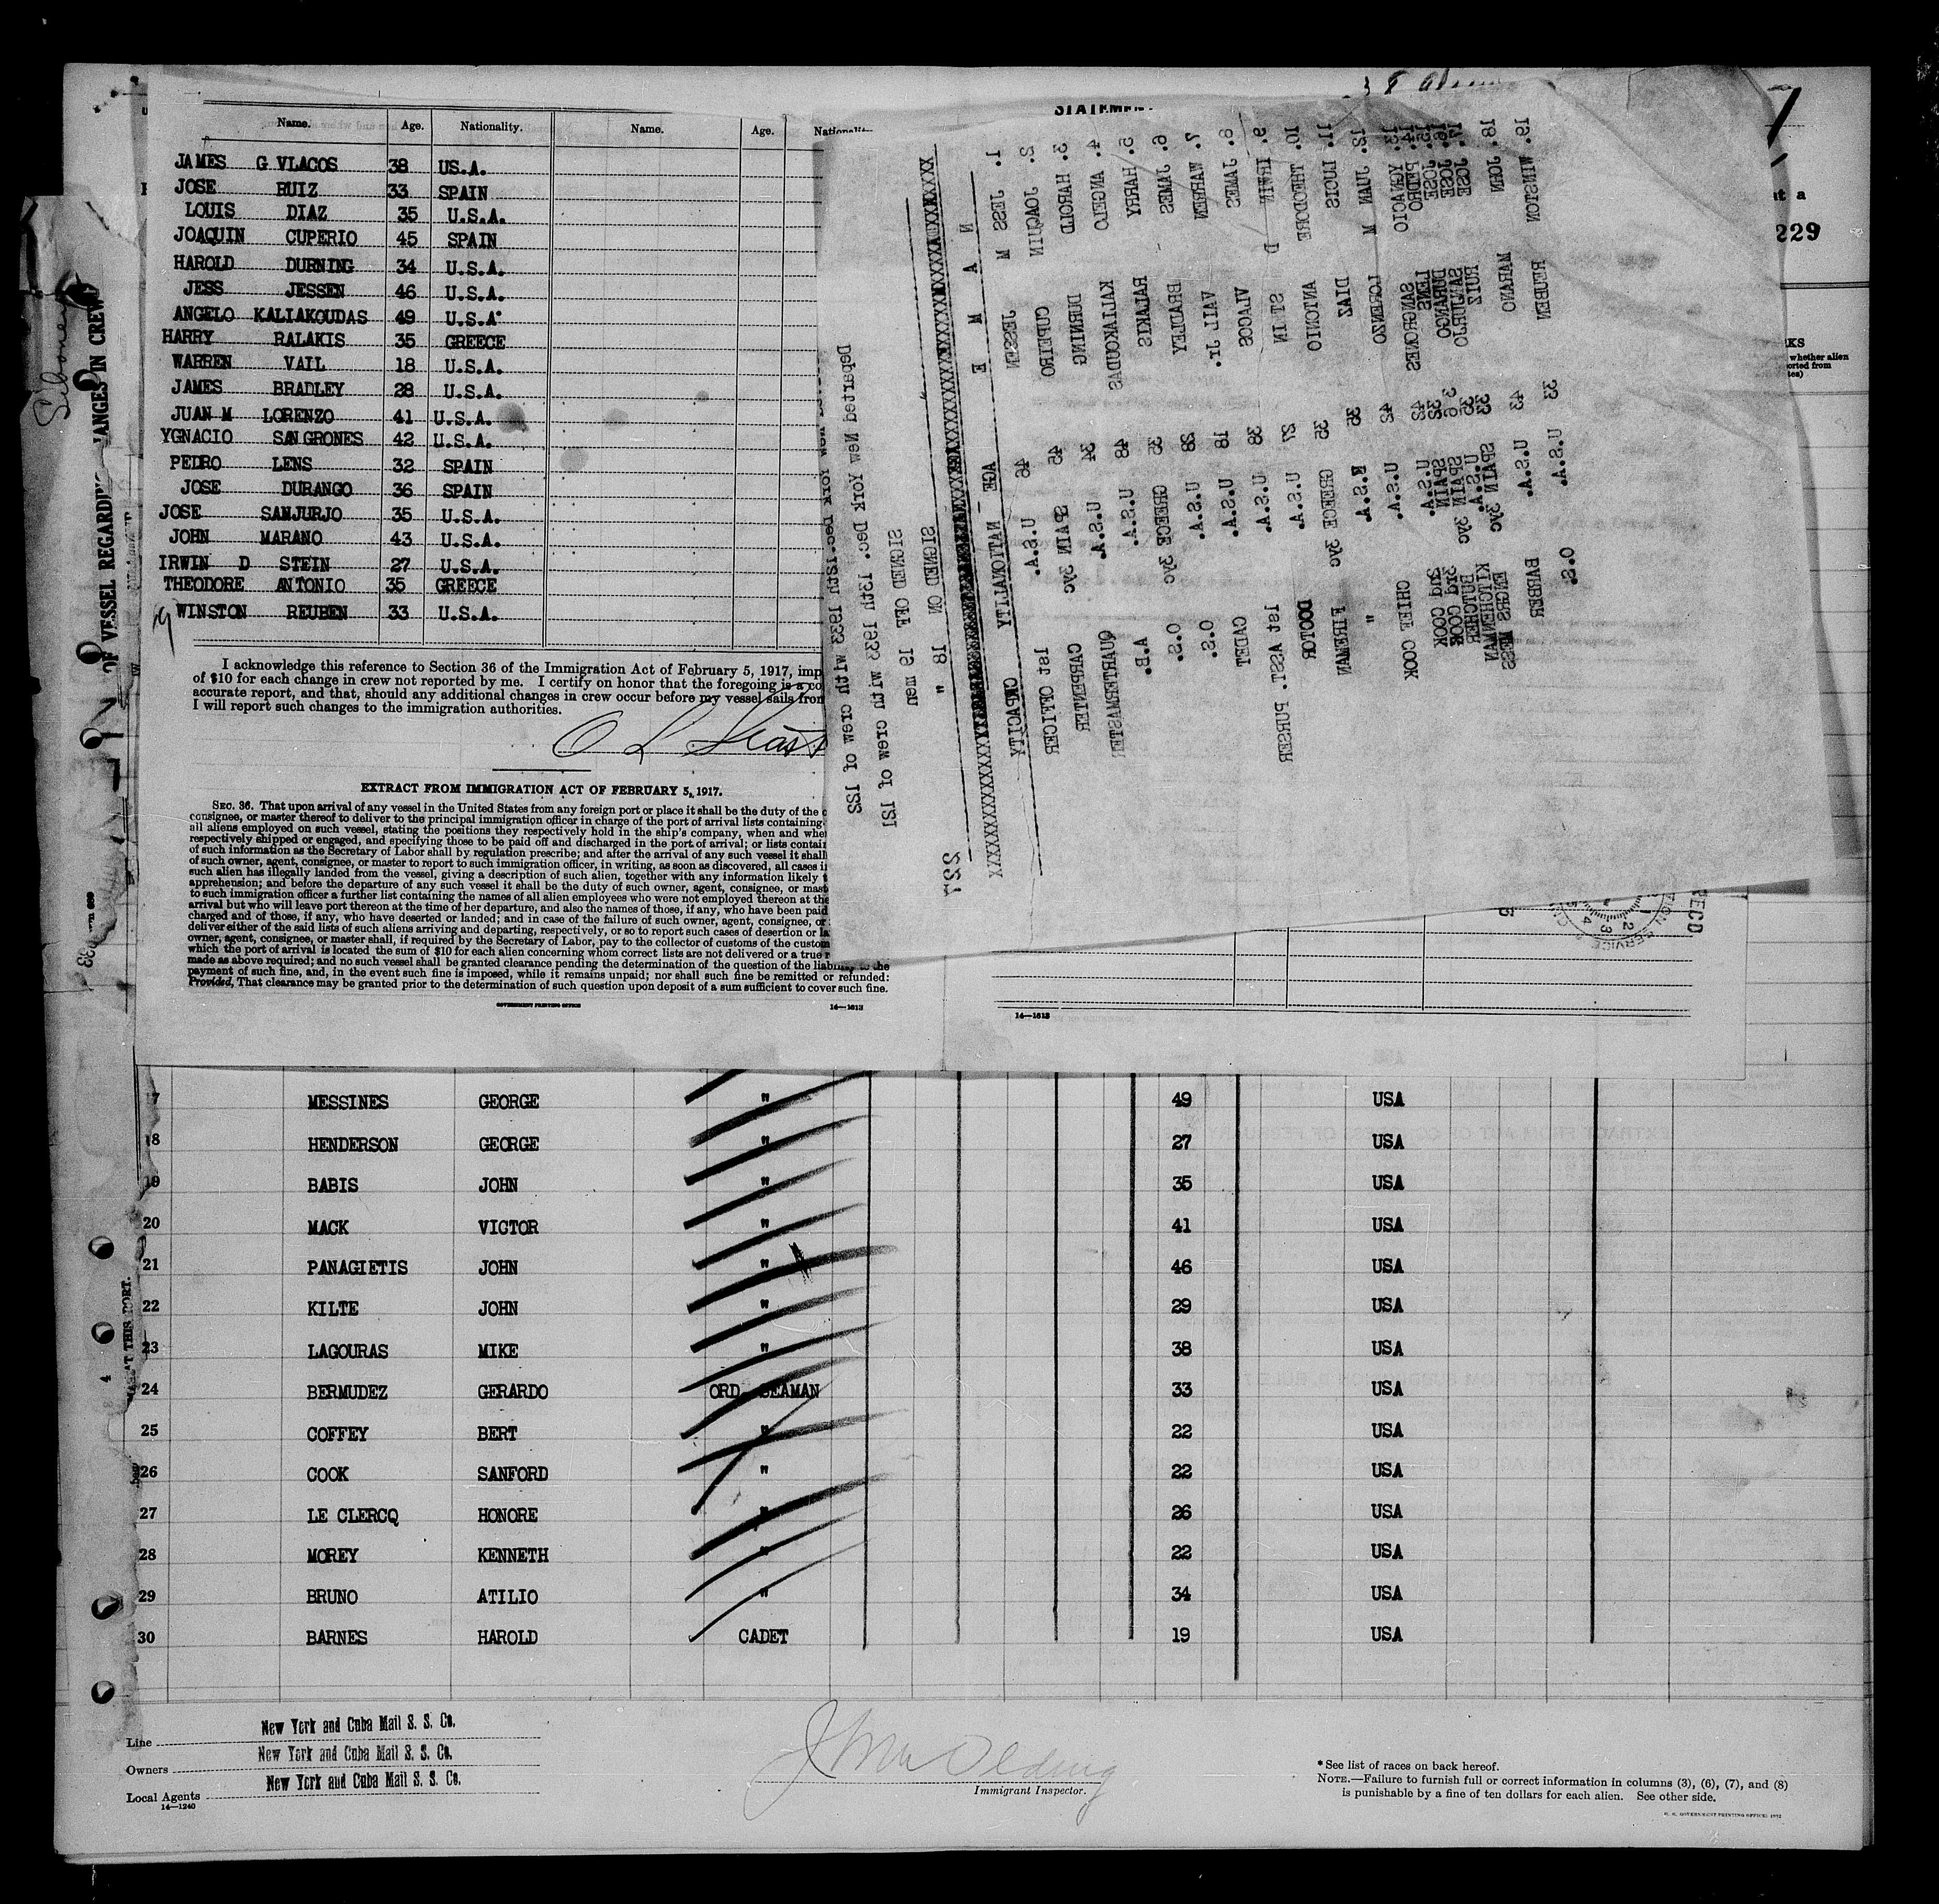 Name. Age. Nationality. Name. Age.
JAMES G VLACOS 38 US.A.
JOSE RUIZ 33 SPAIN
LOUIS DIAZ 35 U.S.A.
JOAQUIN CUPERIO 45 SPAIN
HAROLD DURNING 34 U.S.A.
JESS JESSEN 46 U.S.A.
ANGELO KALIAKOUDAS 49 U.S.A.
HARRY RALAKIS 35 GREECE
WARREN VAIL 18 U.S.A.
JAMES BRADLEY 28 U.S.A.
JUAN M LORENZO 41 U.S.A.
YGNACIO SANGRONES 42 U.S.A.
PEDRO LENS 32 SPAIN
JOSE DURANGO 36 SPAIN
JOSE SANJURJO 35 U.S.A.
JOHN MARANO 43 U.S.A.
IRWIN D STEIN 27 U.S.A.
THEODORE ANTONIO 35 GREECE
19 WINSTON REUBEN 33 U.S.A.
I acknowledge this reference to Section 36 of the Immigration Act of February 5, 1917,
of $10 for each change in crew not reported by me. I certify on honor that the foregoing is a
accurate report, and that, should any additional changes in crew occur before my vessel sails from
I will report such changes to the immigration authorities.
EXTRACT FROM IMMIGRATION ACT OF FEBRUARY 5, 1917.
SEC. 36. That upon arrival of any vessel in the United States from any foreign port or place it shall be the duty of the
consignee, or master thereof to deliver to the principal immigration officer in charge of the port of arrival lists containing
all aliens employed on such vessel, stating the positions they respectively hold in the ship's company, when and
respectively shipped or engaged, and specifying those to be paid off and discharged in the port of arrival; or lists
of such information as the Secretary of Labor shall by regulation prescribe; and after the arrival of any such vessel it shall
of such owner, agent, consignee, or master to report to such immigration officer, in writing, as soon as discovered, all cases
such alien has illegally landed from the vessel, giving a description of such alien, together with any information likely
apprehension; and before the departure of any such vessel it shall be the duty of such owner, agent, consignee, or
to such immigration officer a further list containing the names of all alien employees who were not employed thereon at the
arrival but who will leave port thereon at the time of her departure, and also the names of those, if any, who have been paid
charged and of those, if any, who have deserted or landed; and in case of the failure of such owner, agent, consignee, or
deliver either of the said lists of such aliens arriving and departing, respectively, or so to report such cases of desertion or
owner, agent, consignee, or master shall, if required by the Secretary of Labor, pay to the collector of customs of the
which the port of arrival is located the sum of $10 for each alien concerning whom correct lists are not delivered or a true
made as above required; and no such vessel shall be granted clearance pending the determination of the question of the liability to the
payment of such fine, and, in the event such fine is imposed, while it remains unpaid; nor shall such fine be remitted or refunded:
Provided, That clearance may be granted prior to the determination of such question upon deposit of a sum sufficient to cover such fine.
GOVERNMENT PRINTING OFFICE 14—1613
14—1613
Departed New York Dec. 13th 1933 with crew of 121
SIGNED OFF 19 men
SIGNED ON 18 "
N A M E AGE NATIONALITY CAPACITY
1. JESS M JESSEN 46 U.S.A. 1st OFFICER
2. JOAQUIN CUPEIRO 45 SPAIN 3yc CARPENTER
3. HAROLD DURNING 34 U.S.A. QUARTERMASTER
4. ANGELO KALIAKOUDAS 48 U.S.A. A.B.
5. HARRY RALAKIS 35 GREECE 3yc O.S.
6. JAMES BRADLEY 28 U.S.A. O.S.
7. WARREN VAIL Jr. 18 U.S.A. CADET
8. JAMES VLACOS 38 U.S.A. 1st ASST. PURSER
9. IRWIN D 27 U.S.A. DOCTOR
10. THEODORE ANTONIO 35 GREECE 3yc FIREMAN
11. LUCIS DIAZ 35 "
12. JUAN M LORENZO 42 U.S.A. CHIEF COOK
13. YGNACIO SANGRONES 42 U.S.A. 2nd COOK
14. PEDRO LENS 32 SPAIN 3rd COOK
15. JOSE DURANGO SPAIN 3yc BUTCHER
16. JOSE SANJURJO 35 U.S.A. KITCHENMAN
17. JOSE RUIZ 33 SPAIN 3yc ENGRS MESS
18. JOHN MARANO 43 U.S.A. BARBER
19. WINSTON REUBEN 33 U.S.A. O.S.
229
REC'D
OF VESSEL REGARDING CHANGES IN CREW
Siboney
7 MESSINES GEORGE " 49 USA
18 HENDERSON GEORGE " 27 USA
19 BABIS JOHN " 35 USA
20 MACK VICTOR " 41 USA
21 PANAGIETIS JOHN " 46 USA
22 KILTE JOHN " 29 USA
23 LAGOURAS MIKE " 38 USA
24 BERMUDEZ GERARDO ORD. SEAMAN 33 USA
25 COFFEY BERT " 22 USA
26 COOK SANFORD " 22 USA
27 LE CLERCQ HONORE " 26 USA
28 MOREY KENNETH " 22 USA
29 BRUNO ATILIO " 34 USA
30 BARNES HAROLD CADET 19 USA
Line New York and Cuba Mail S. S. Co.
Owners New York and Cuba Mail S. S. Co.
Local Agents New York and Cuba Mail S. S. Co.
14—1240
Immigrant Inspector.
* See list of races on back hereof.
NOTE.—Failure to furnish full or correct information in columns (3), (6), (7), and (8)
is punishable by a fine of ten dollars for each alien. See other side.
U. S. GOVERNMENT PRINTING OFFICE: 1932